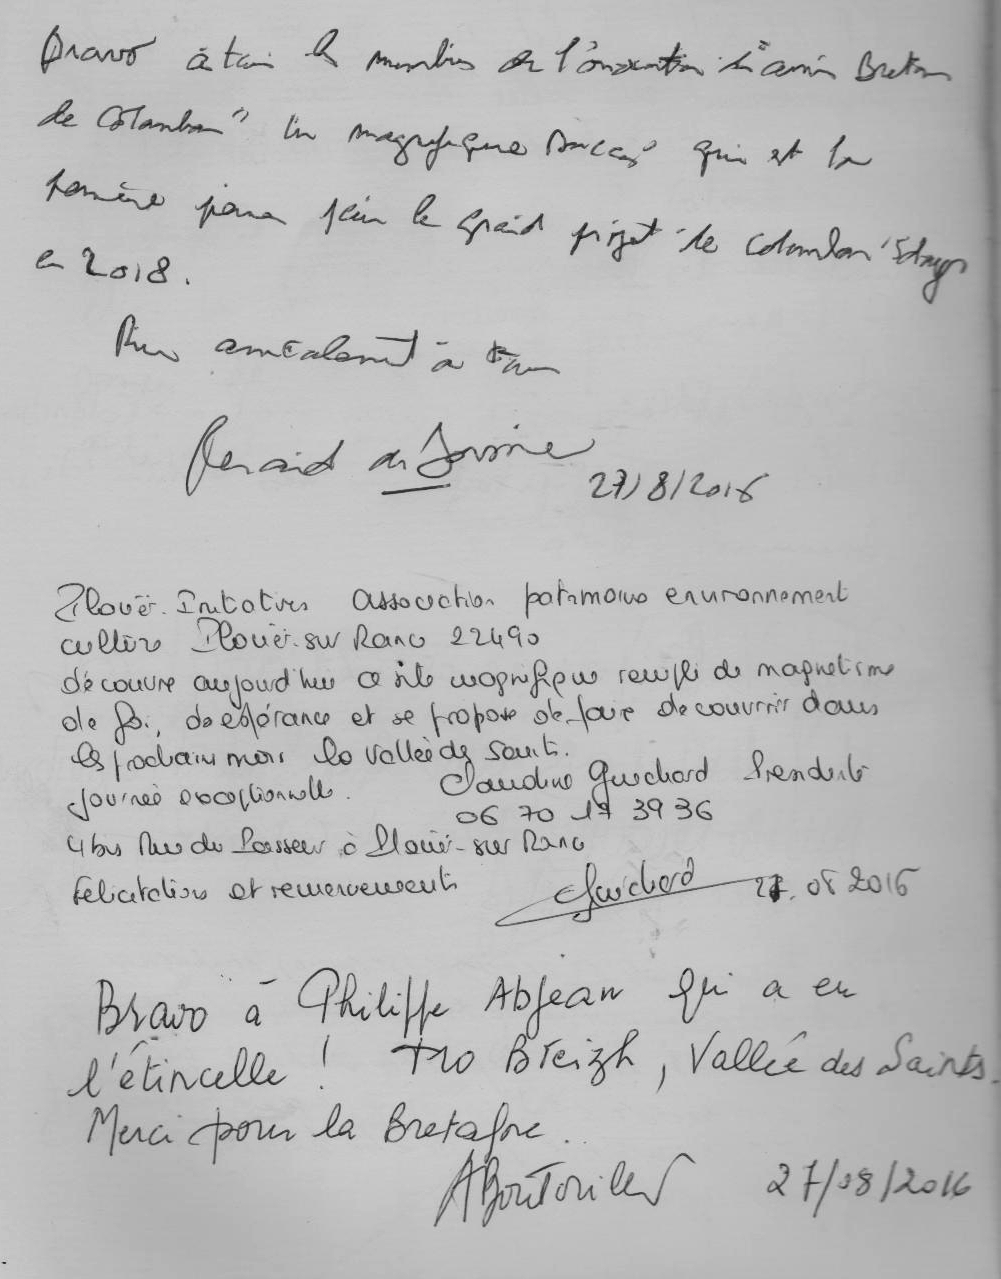 Bravo à tous les membres de l'association "les amis Bretons
de Colomban" Un magnifique succès qui est la
première pierre pour le grand projet de Colomban's day
en 2018.
Bien amicalement à tous
27/8/2016
Plouër-Initiatives association patrimoine environnement
culture Plouër-sur Rance 22490
découvre aujourd'hui ce site magnifique rempli de magnétisme
de foi, d'espérance et se propose de faire découvrir dans
les prochain mois la vallée des Saints.
Journée exceptionnelle. Claudine Guichard Présidente
06 70 17 39 36
4 bis Rue du Passeur à Plouër-sur Rance
Félicitations et remerciements Guichard 27.08 2016
Bravo à Philippe Abjean qui a eu
l'étincelle ! Tro Breizh, Vallée des Saints
Merci pour la Bretagne.
27/08/2016